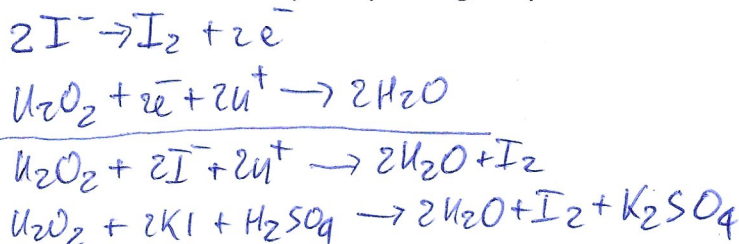 2I⁻ → I₂ + 2e⁻
H₂O₂ + 2e⁻ + 2H⁺ → 2H₂O
H₂O₂ + 2I⁻ + 2H⁺ → 2H₂O + I₂
H₂O₂ + 2KI + H₂SO₄ → 2H₂O + I₂ + K₂SO₄